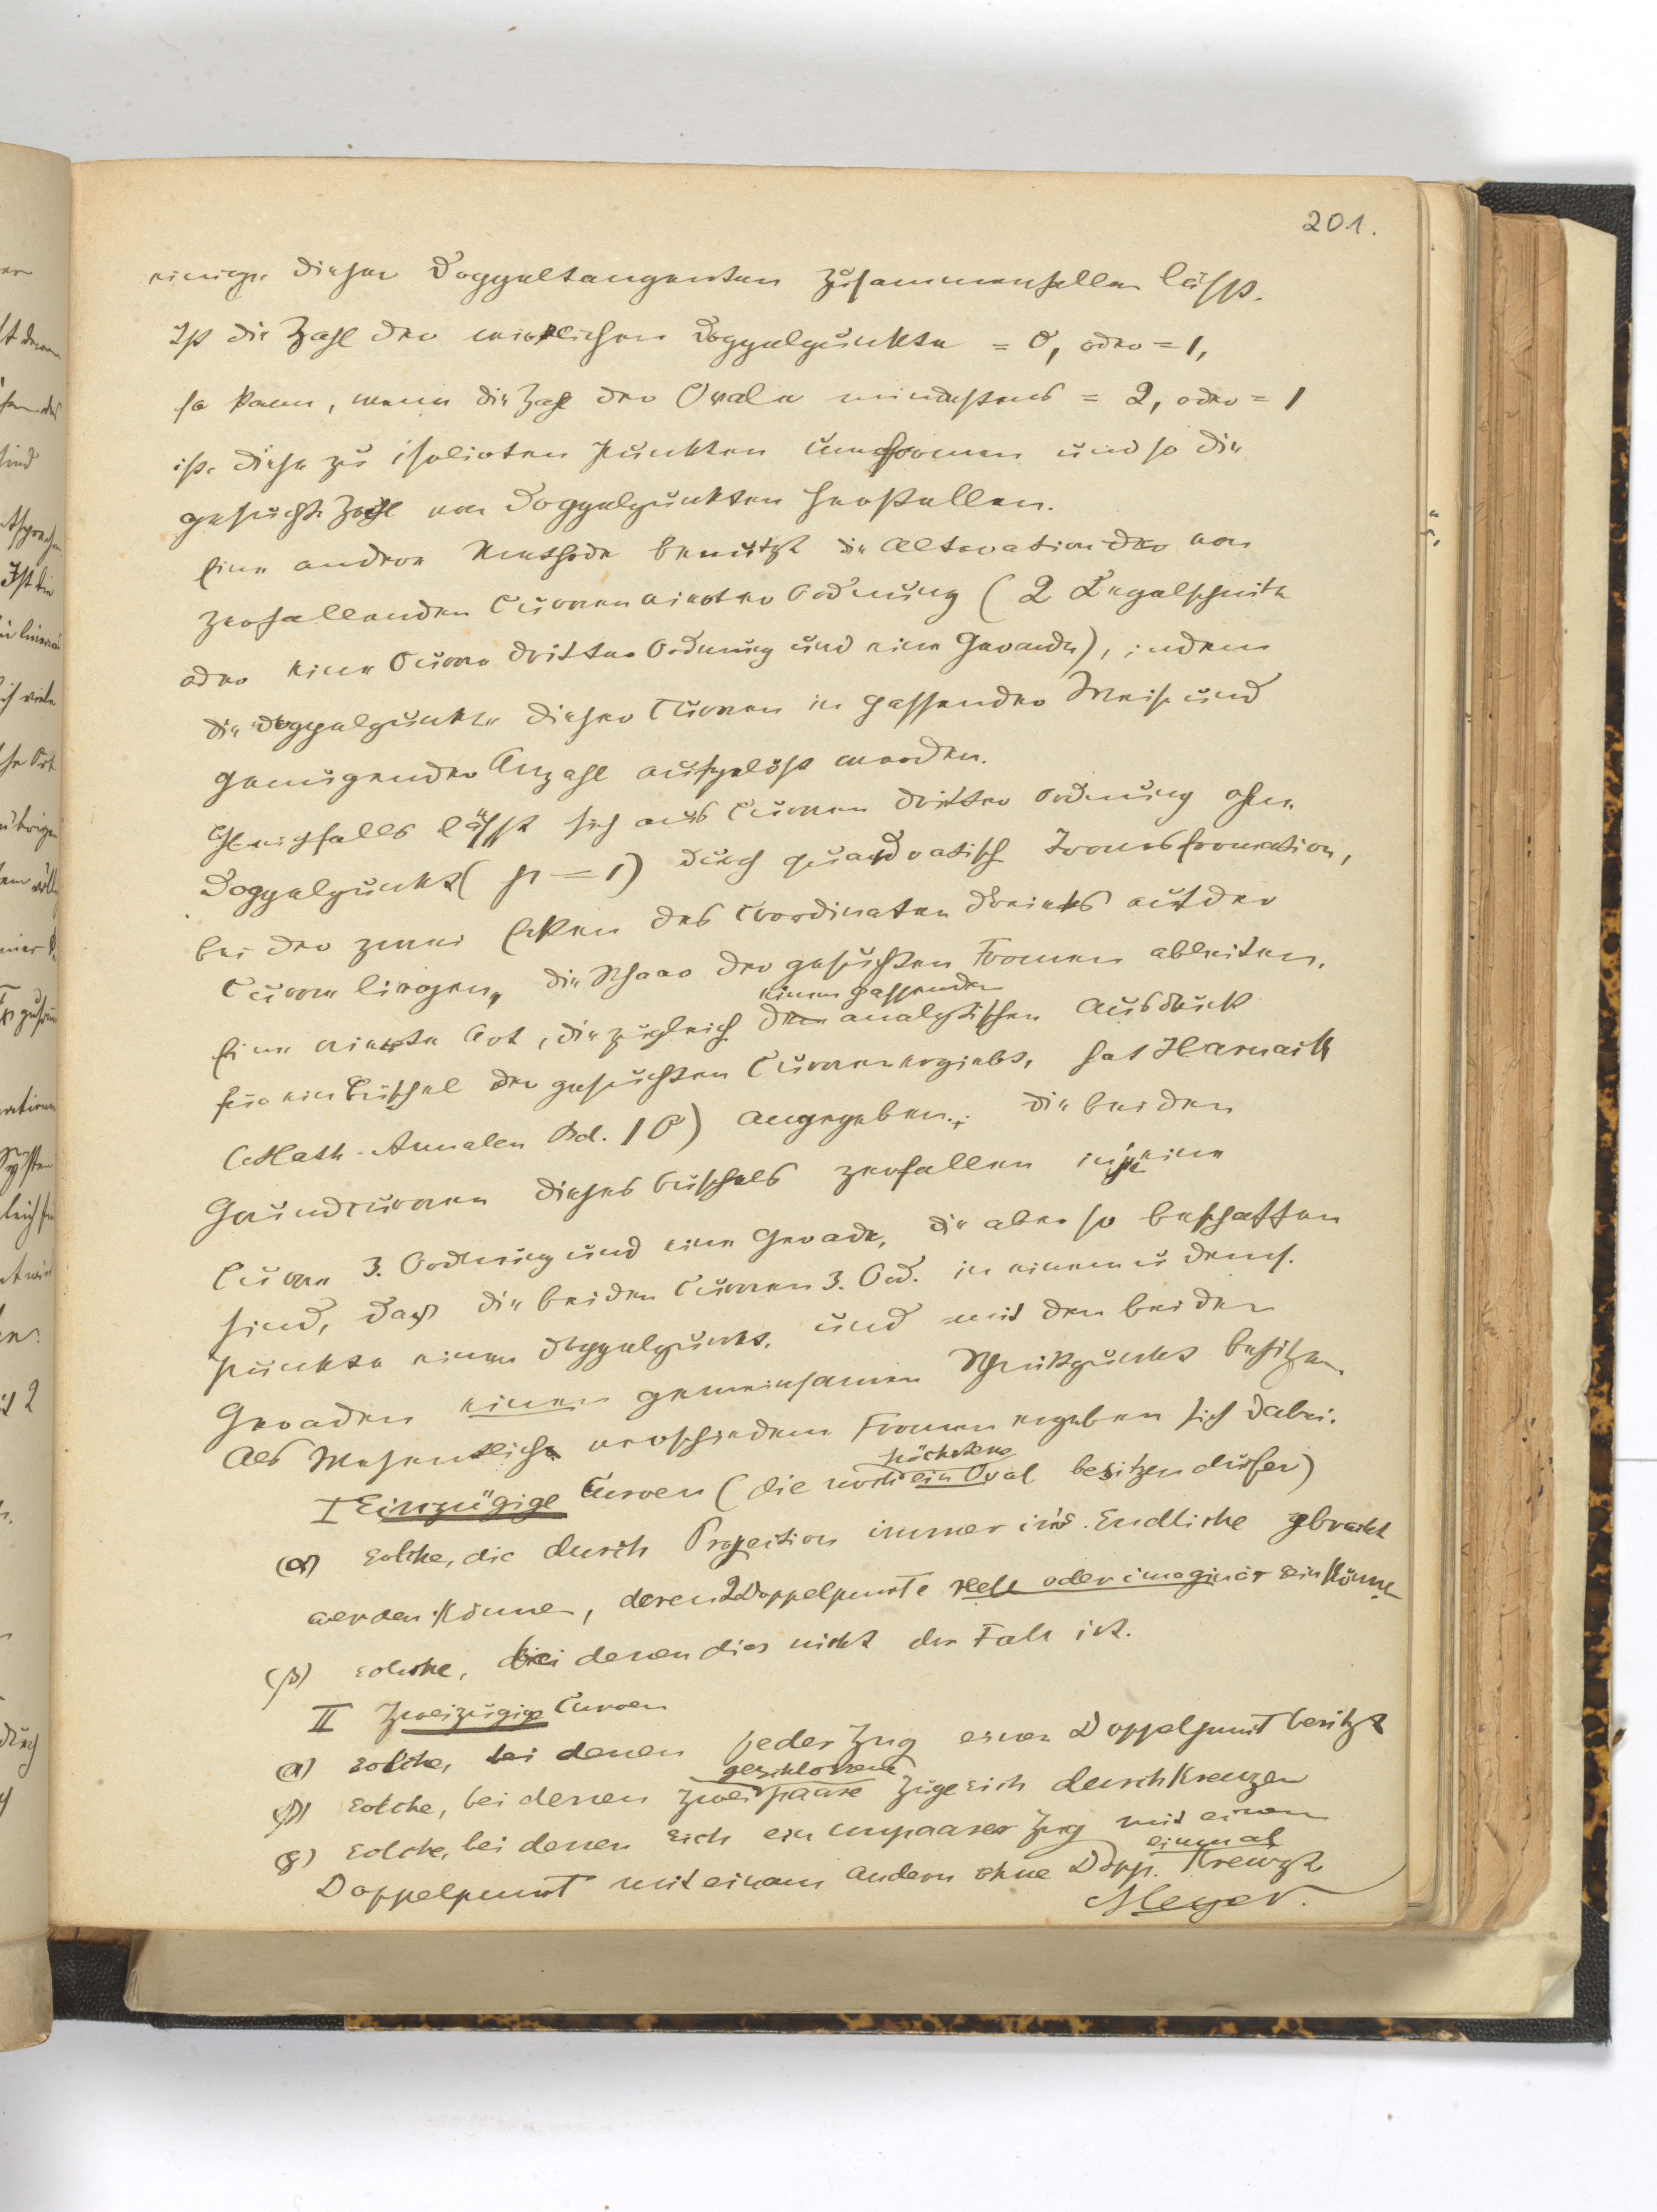 201.
einige dieser Doppeltangenten zusammenfallen lässt.
Ist die Zahl der wirklichen Doppelpunkte = 0, oder = 1,
so kann, wenn die Zahl der Ovale mindestens = 2, oder = 1
ist, diese zu isolirten Punkten umformen und so die
gesuchte Zahl von Doppelpunkten herstellen.
Eine andere Methode benutzt die Alteration der von
zerfallenden Curven vierter Ordnung (2 Kegelschnitte
oder eine Curve dritter Ordnung und eine Gerade), indem
die Doppelpunkte dieser Curven in passender Weise und
genügender Anzahl aufgelöst werden.
Gleichfalls lässt sich aus Curven dritter Ordnung ohne
Doppelpunkt (p = 1) durch quadratische Transformation,
bei der zwei Ecken des Coordinatendreiecks auf der
Curve liegen, die Schaar der gesuchten Formen ableiten.
Eine vierte Art, die zugleich einen passenden analytischen Ausdruck
für ein Büschel der gesuchten Curven ergiebt, hat Harnack
(Math. Annalen Bd. 10) angegeben; die beiden
Grundcurven dieses Büschels zerfallen in je eine
Curve 3. Ordnung und eine Gerade, die aber so beschaffen
sind, dass die beiden Curven 3. Ord. in einem u dems.
Punkte einen Doppelpunkt, und mit den beiden
Geraden einen gemeinsamen Schnittpunkt besitzen.
Als Wesentliche verschiedene Formen ergeben sich dabei:
I Einzügige Curven (die noch höchstens ein Oval besitzen dürfen)
α) solche, die durch Projection immer in's Endliche gebracht
werden können, deren 2 Doppelpunkte reell oder imaginär sein können
β) solche, bei denen dies nicht der Fall ist.
II Zweizügige Curven
α) solche, bei denen jeder Zug einen Doppelpunkt besitzt
β) solche, bei denen zwei geschlossene paare Züge sich durchkreuzen
γ) solche, bei denen sich ein unpaarer Zug mit einem
Doppelpunkt mit einem andern ohne Dopp. einmal kreuzt
Meyer.